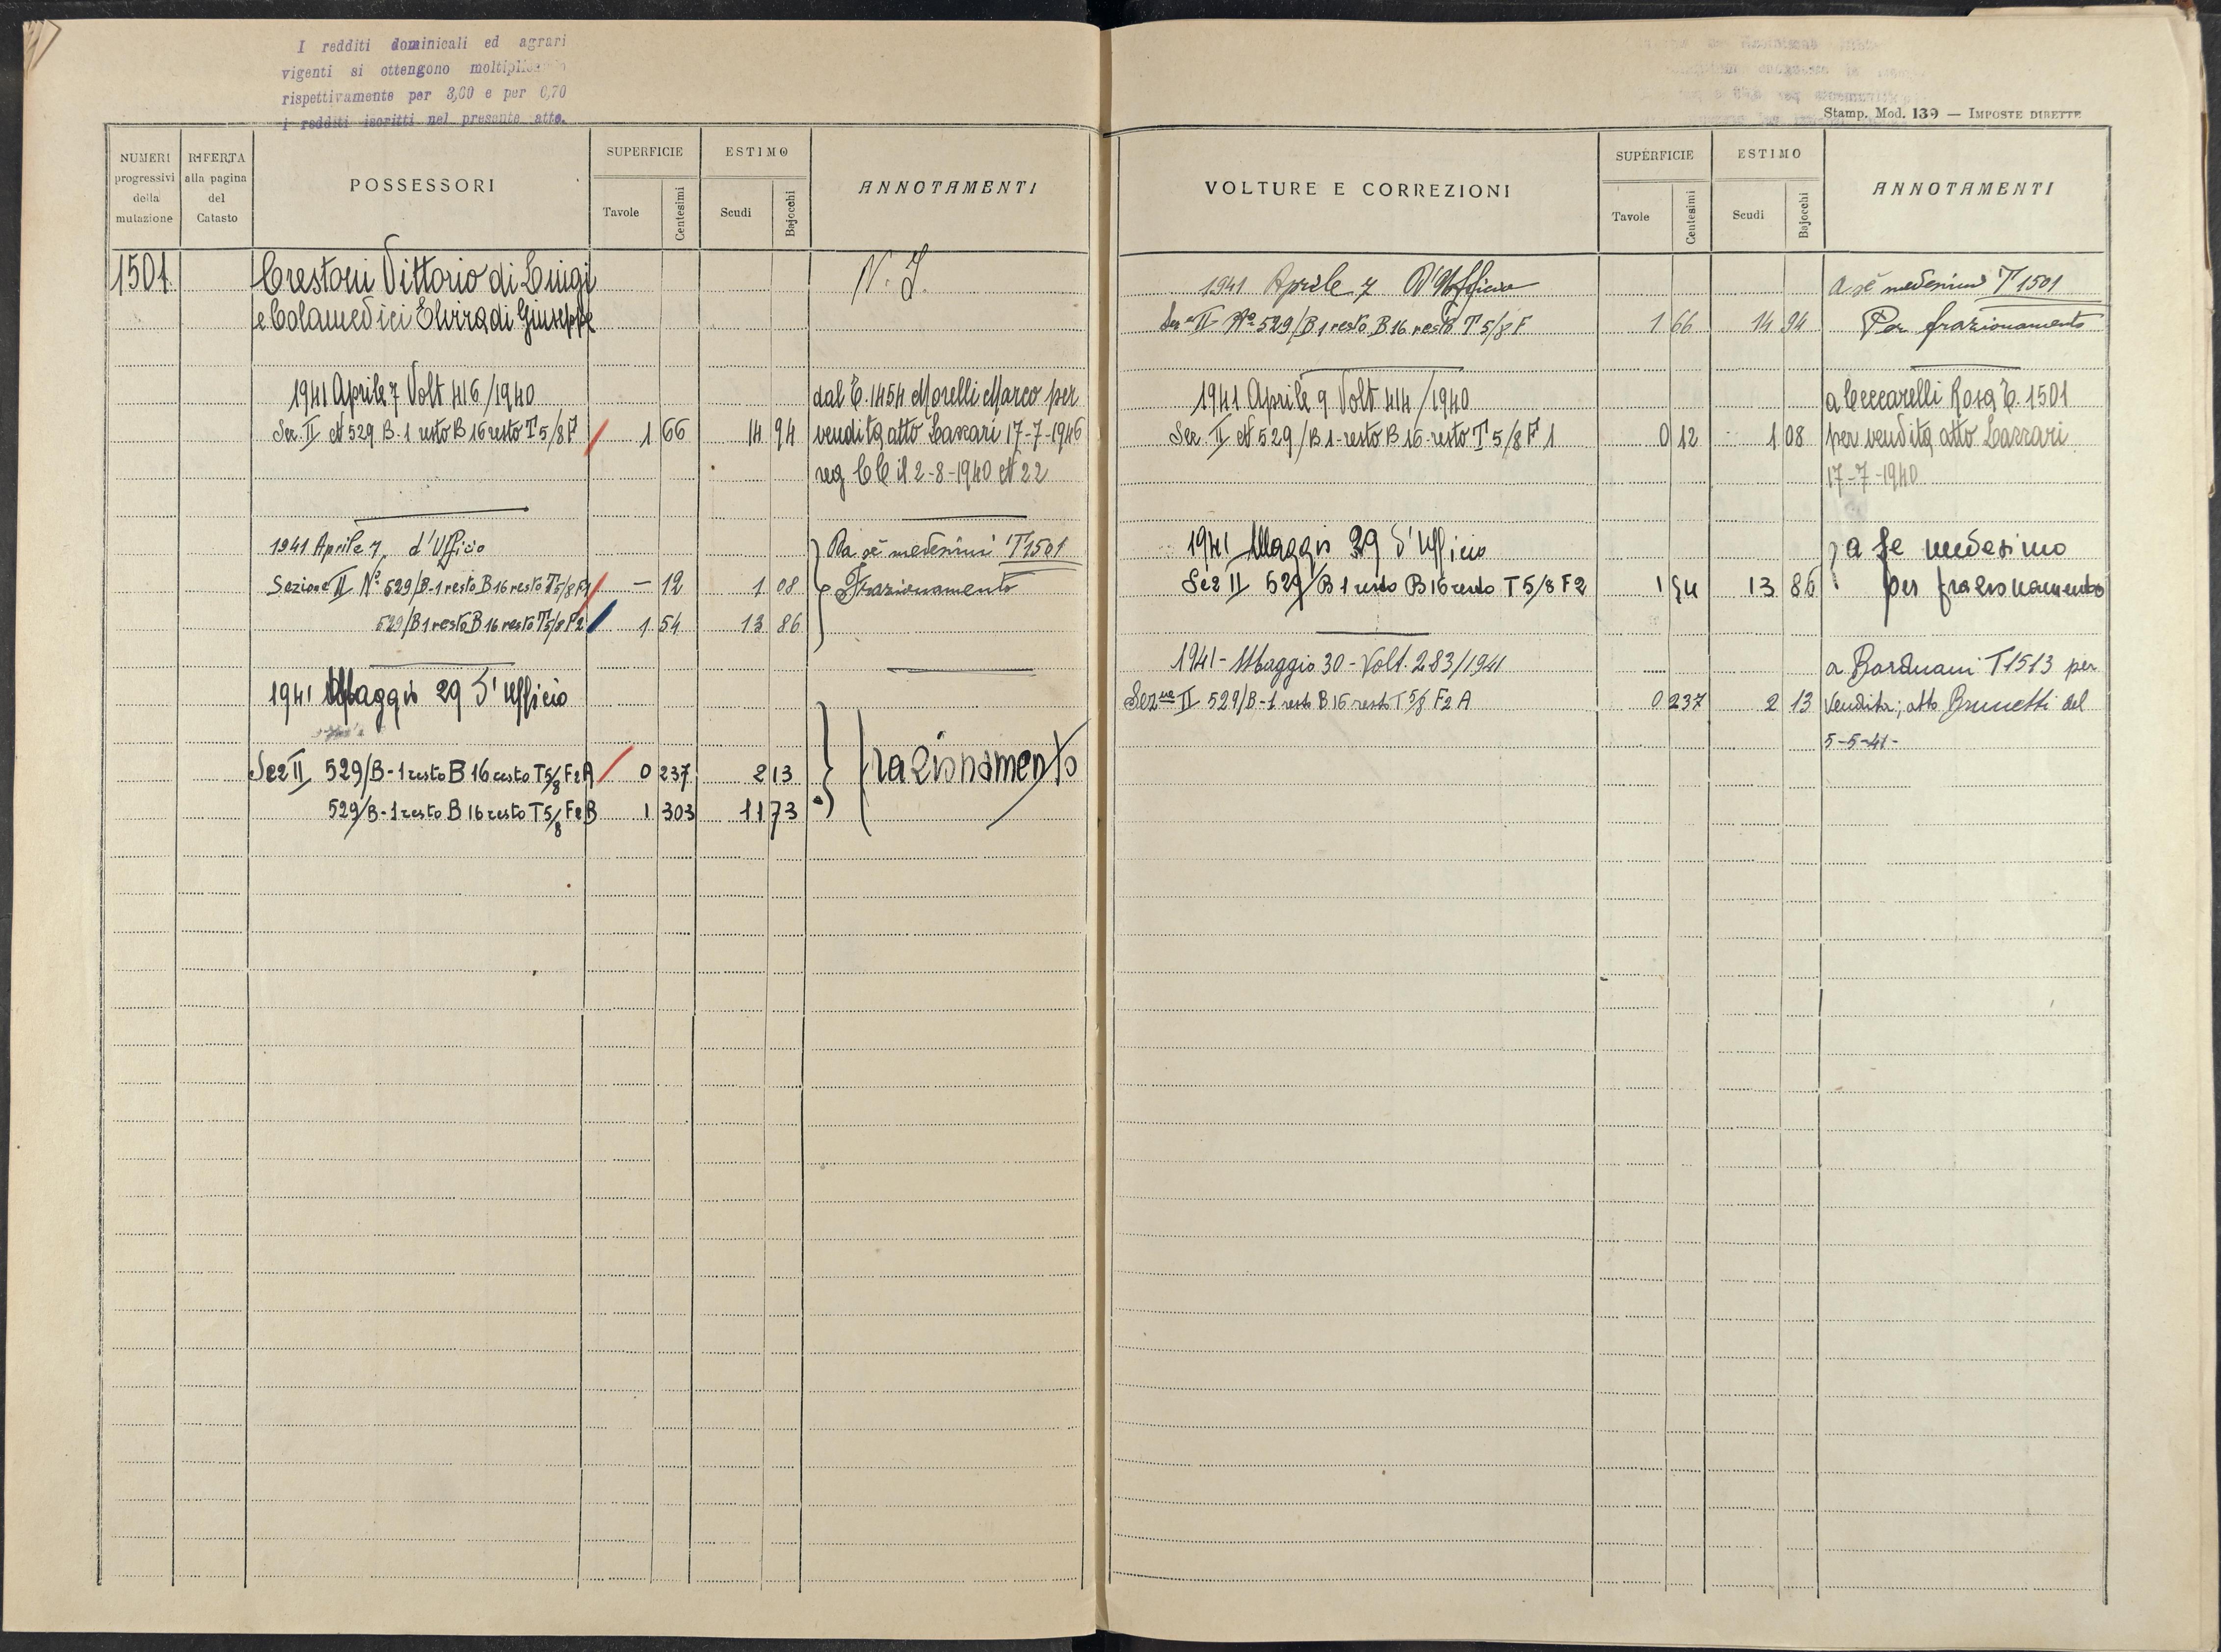 I redditi dominicali ed agrari
vigenti si ottengono
rispettivamente per 3,00 e per 0,70
i redditi iscritti nel presente atto.
NUMERI progressivi della mutazione
RIFERTA alla pagina del Catasto
POSSESSORI
SUPERFICIE
Tavole
Centesimi
ESTIMO
Scudi
Bajocchi
ANNOTAMENTI
1501. Crestoni Vittorio di Luigi N. I.
e Colamedici Elvira di Giuseppe
1941 Aprile 7 Volt 416/1940 dal T. 1454 Morelli Marco per
Sez II N 529 B-1 resto B 16 resto T 5/8 F 1 66 14 94 vendita atto 17-7-1946
reg il 2-8-1940 N 22
1941 Aprile 7, d'Ufficio Da sè medesimi T 1501
Sezione II Nº 529/B-1 resto B 16 resto T 5/8 F1 — 12 1 08 Frazionamento
529/B 1 resto B 16 resto T 5/8 F2 1 54 13 86
1941 Maggio 29 d'Ufficio
Sez II 529/B-1 resto B 16 resto T 5/8 F2A 0 237 2 13 frazionamento
529/B-1 resto B 16 resto T 5/8 F2B 1 303 11 73
Stamp. Mod. 139 — IMPOSTE DIRETTE
VOLTURE E CORREZIONI
SUPERFICIE
Tavole
Centesimi
ESTIMO
Scudi
Bajocchi
ANNOTAMENTI
1941 Aprile 7 D'Ufficio a sè medesimi T 1501
II Nº 529/B 1 resto B 16 resto T 5/8 F 1 66 14 94 Per frazionamento
1941 Aprile 9 Volt 414/1940 a Ceccarelli Rosa T. 1501
Sez II N 529/B 1-resto B 16-resto T 5/8 F 1 0 12 1 08 per vendita atto Lazzari
17-7-1940
1941 Maggio 29 d'Ufficio a se medesimo
Sez II 529/B 1 resto B 16 resto T 5/8 F2 1 54 13 86 per frazionamento
1941-Maggio 30-Volt. 283/1941 a T 1513 per
Sez.ne II 529/B-1 resto B 16 resto T 5/8 F2 A 0 237 2 13 Vendita; atto Brunetti del
5-5-41-